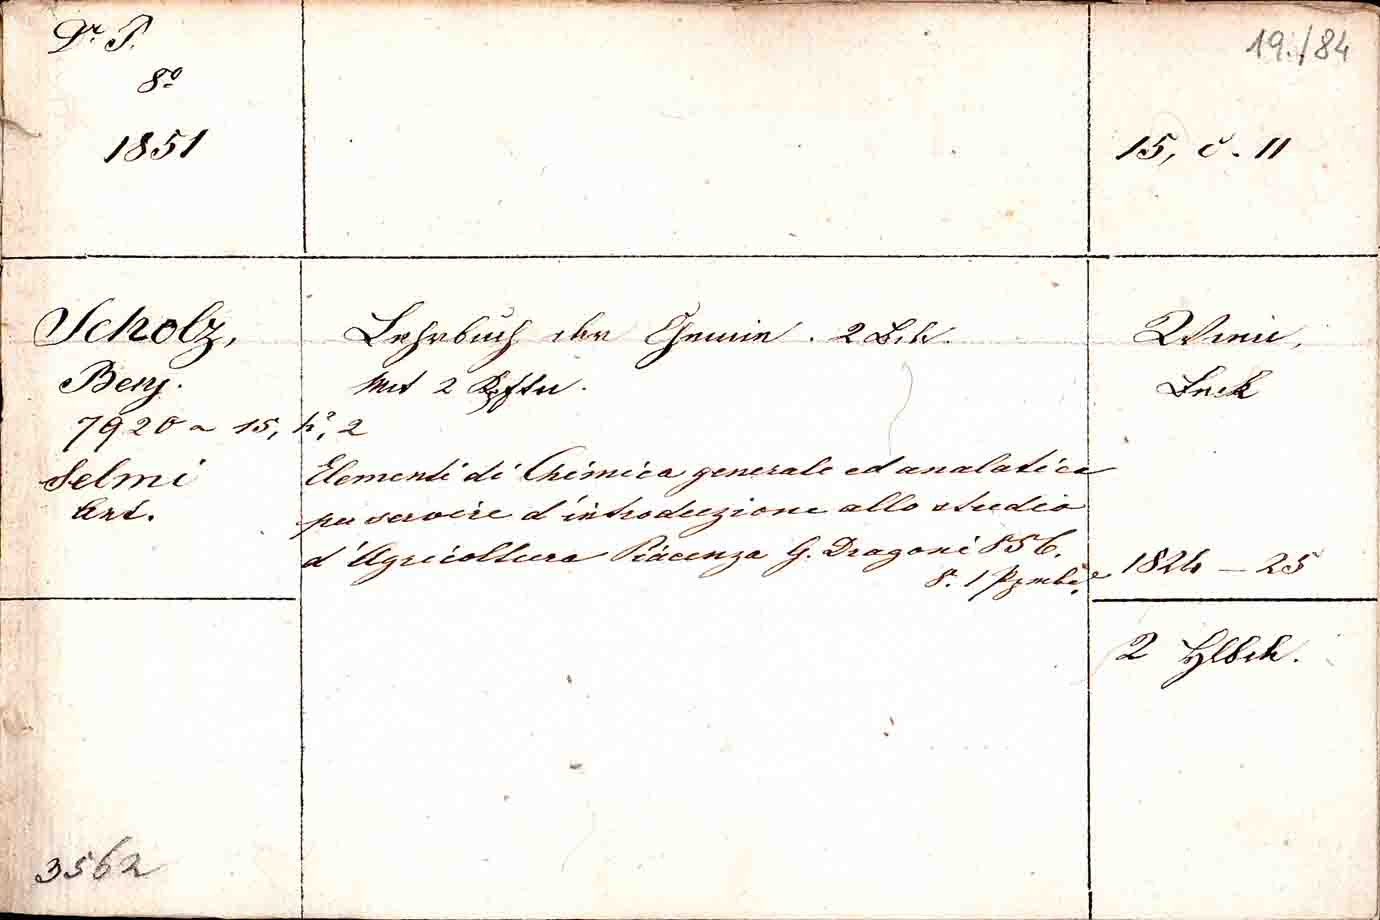 Dr. P.
8º
1851
19./84
15, c. 11
Scholz,
Benj.
Lehrbuch der Chemie. 2 Bde.
Mit 2 Kpftn.
Wien,
Beck
7920 ~ 15, h², 2
Selmi
Ant.
Elementi di Chimica generale ed analatica
per servire d'introduzione allo studio
d'Agricoltura Piacenza G. Dragoni 856.
8. 1
1824–25
2 Hlbde.
3562